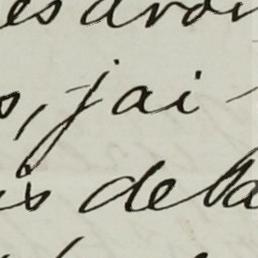 es avoi
s, jai
is de la